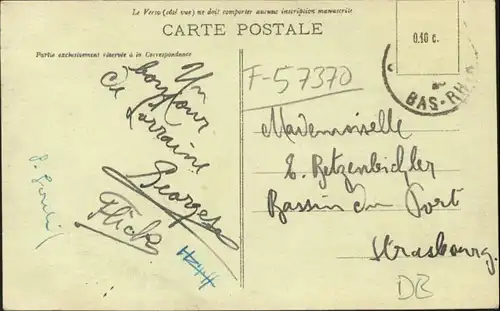 Le Verso (côté vue) ne doit comporter aucune inscription manuscrite
CARTE POSTALE
Partie exclusivement réservée à la Correspondance
0.10 c.
BAS-RH
F-57370
Un
bonjour
de Lorraine
Georges
Flick
Mademoiselle
E. Betzenbichler
Bassin du Port
Strasbourg.
DB